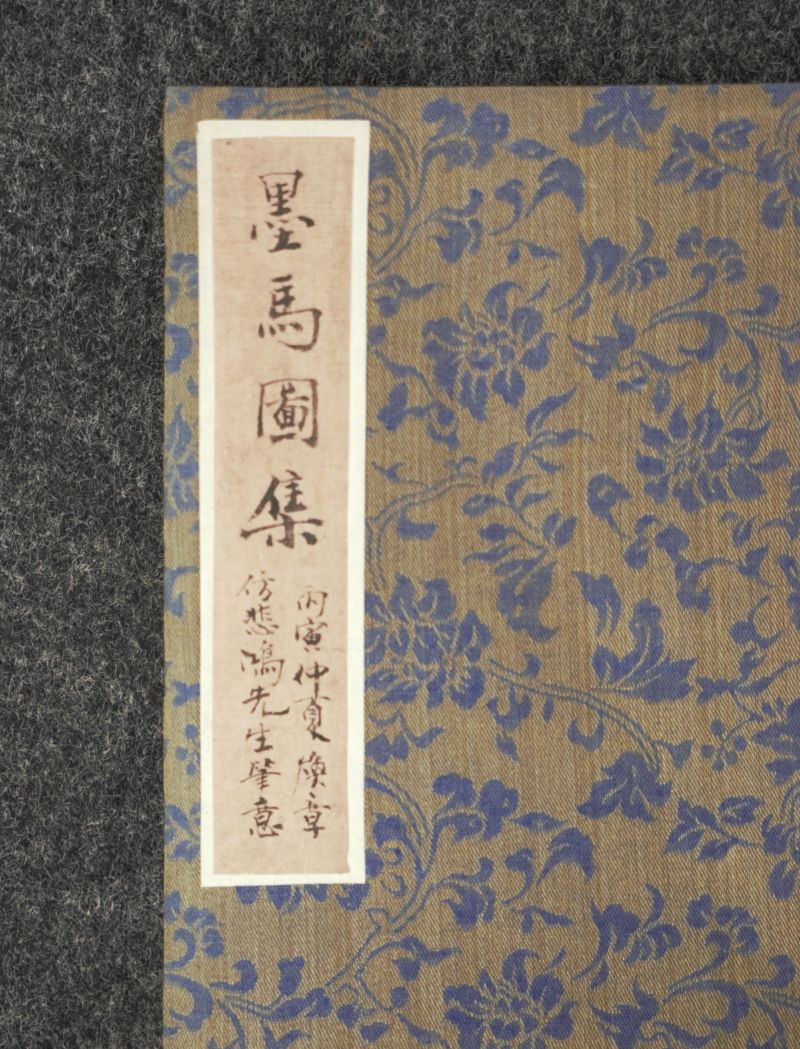 墨馬圖集
丙寅仲夏煥章
仿悲鴻先生筆意